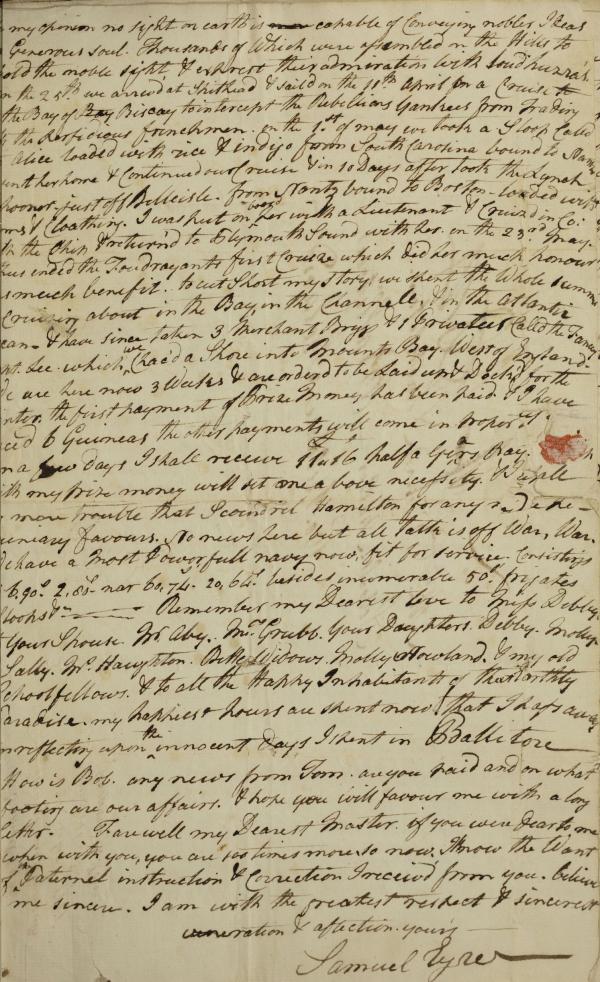 my opinion no sight on earth is capable of Conveying nobler Ideas
Generous soul. Thousands of Which were assembled on the Hills to
old the noble sight, & exprest their admiration with loud huzza's
n the 25th we arived at Spithead & Saild on the 11th April on a Cruise to
the Bay of Biscay to intercept the Rebellious Yankees from Trading
the Perficious frinchmen. on the 1st of may we took a Sloop Called
Alice loaded with rice & indigo from South Carolina bound to
sent her home & Continued our Cruise & in 10 Days after took the Lynch
hooner. just off Belleisle. from Nantz bound to Boston. loaded with
Cloathing. I was put on board her with a Lieutenant & Cruizd in Co:
th the Ship & return'd to Plymouth Sound with her. on the 23rd may.
hus ended the Foudrayants first Cruize which did her much honour
s much benefit. to cut Short my Story, we spent the Whole summe
Cruizing about in the Bay, in the Channell, & in the Atlantic
ean. & have since taken 3 Merchant Briggs & 1 Privateer Called the
nt. Lee. which we Chac'd a Shore into Mounts Bay. West of England.
e are here now 3 Weeks & are orderd to be Laid up & Dock'd for the
inter. the first payment of Prize Money has been paid & I have
6 Guineas the other payments will come in
n a few days I shall receive half a Years Pay.
ith my prize money will set me above necessity.
more trouble that I Councill Hamilton for any
cuneary favours. No news here but all talk is off War, War.
have a most Powerfull navy now, fit for service. Consisting
6, 90s. 2, 80s. near 60, 74s. 20, 64s. besides inumerable 50s. frigates
Sloops &c Remember my Dearest love to Miss Debby,
Your Spouse. Mr Aby. Mrs Grubb. Your Daughters. Debby. Molly
Sally. Mr. Haughton. Betty Widows. Molly Howland. & my old
choolfellows. & to all the Happy Inhabitants of that Earthly
aradise. my happiest hours are spent now that I pass away
n reflecting upon the innocent Days I spent in Ballitore
How is Bob. any news from Tom. are you paid and on what
footing are our affairs. I hope you will favour me with a long
letter. Farewell my Dearest Master. if you were Dear to me
when with you, you are 100 times more so now. I know the Want
of Paternel instruction & Correction I receiv'd from you. believe
me sincere. I am with the greatest respect & sincerest
veneration & affection. yours
Samuel Eyre